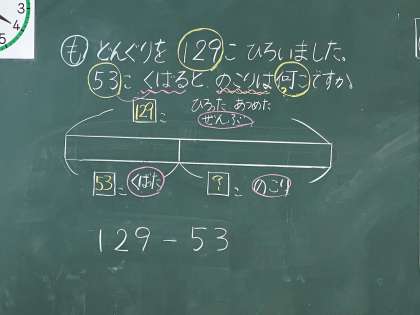 3
4
5
も どんぐりを 129こ ひろいました。
53こ くばると のこりは 何こですか。
129こ ひろった あつめた
ぜんぶ
53こ くばった ?こ のこり
129-53